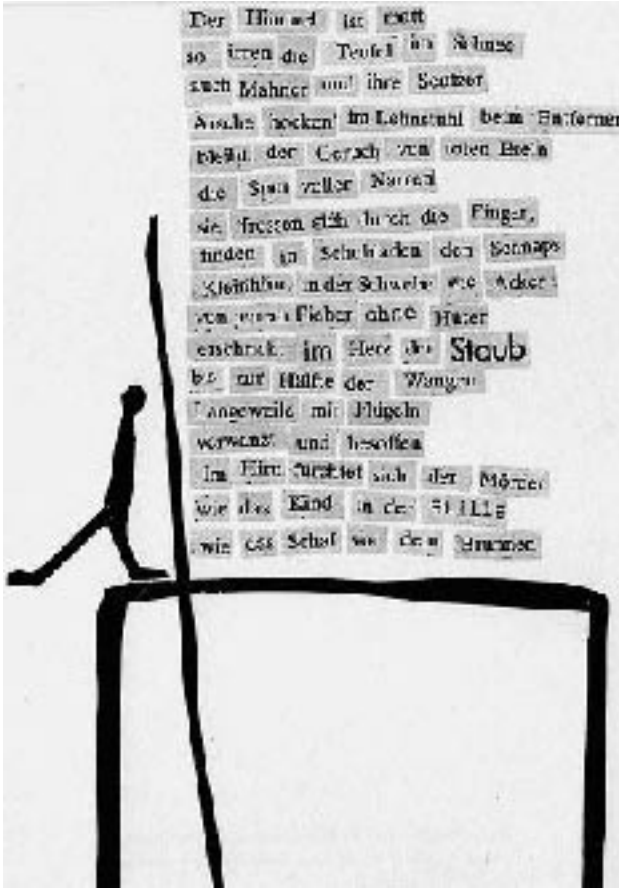 Der Himmel ist matt
so irren die Teufel im Schnee
auch Männer und ihre Seufzer
hocken im Lehnstuhl beim Entfernen
bleibt der Geruch von roten
die voller Narren
sie fressen sich durch die Finger,
finden in Schubladen den Schnaps
in der Schwebe wie Äcker
vom Fieber ohne Hüter
erschrickt im Herz der Staub
bis zur Hälfte der Wangen
Langeweile mit Flügeln
verwanzt und besoffen
Im Hirn fürchtet sich der Mörder
wie das Kind in der Stille
wie das Schaf vor dem Brunnen